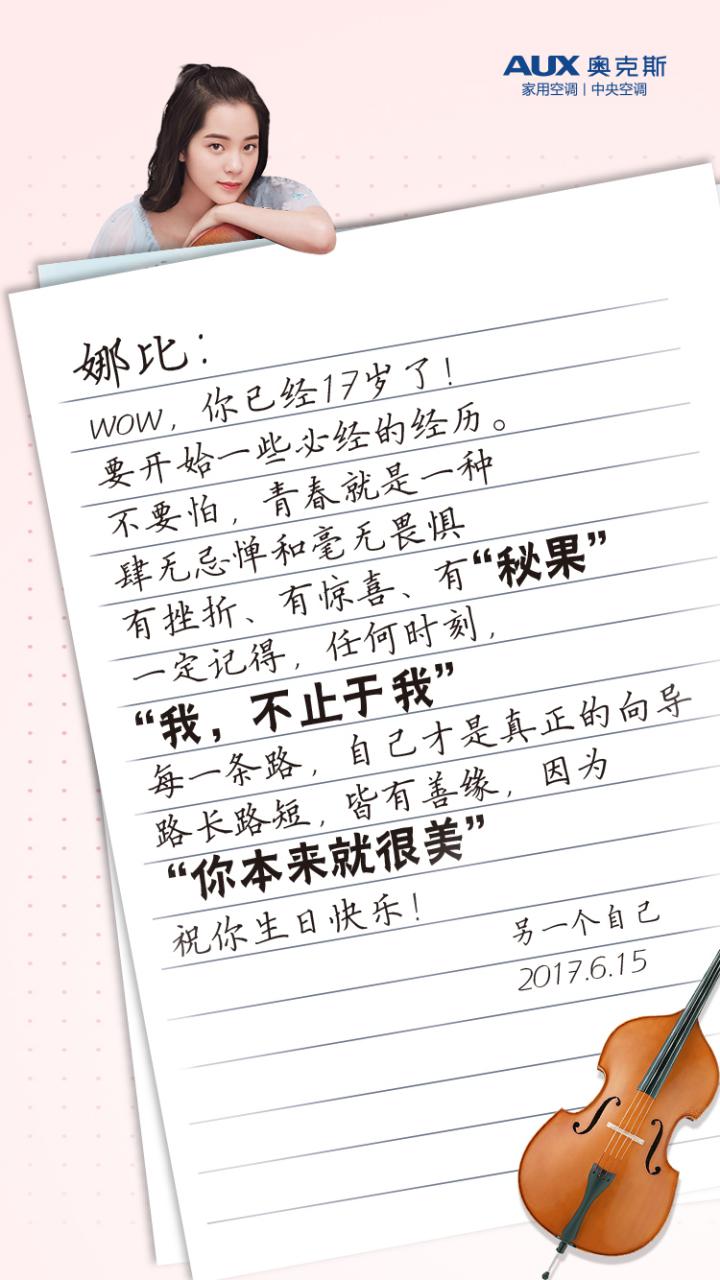 AUX 奥克斯
家用空调 | 中央空调
娜比：
WOW，你已经17岁了！
要开始一些必经的经历。
不要怕，青春就是一种
肆无忌惮和毫无畏惧
有挫折、有惊喜、有“秘果”
一定记得，任何时刻，
“我，不止于我”
每一条路，自己才是真正的向导
路长路短，皆有善缘，因为
“你本来就很美”
祝你生日快乐！
另一个自己
2017.6.15